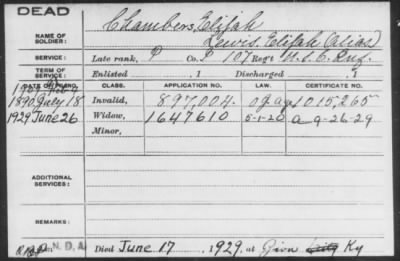 DEAD
NAME OF SOLDIER: Chambers, Elijah
Lewis, Elijah (Alias)
SERVICE: Late rank, P Co. 107 Reg't U.S.C. Inf.
TERM OF SERVICE: Enlisted , 1 Discharged , 1
DATE OF FILING. CLASS. APPLICATION NO. LAW. CERTIFICATE NO.
1890 July 18 Invalid, 897,004. of age 1015,265
1929 June 26 Widow, 1647610 5-1-20 a 9-26-29
Minor,
ADDITIONAL SERVICES:
REMARKS:
N. D. A.
Died June 17, 1929, at Ky